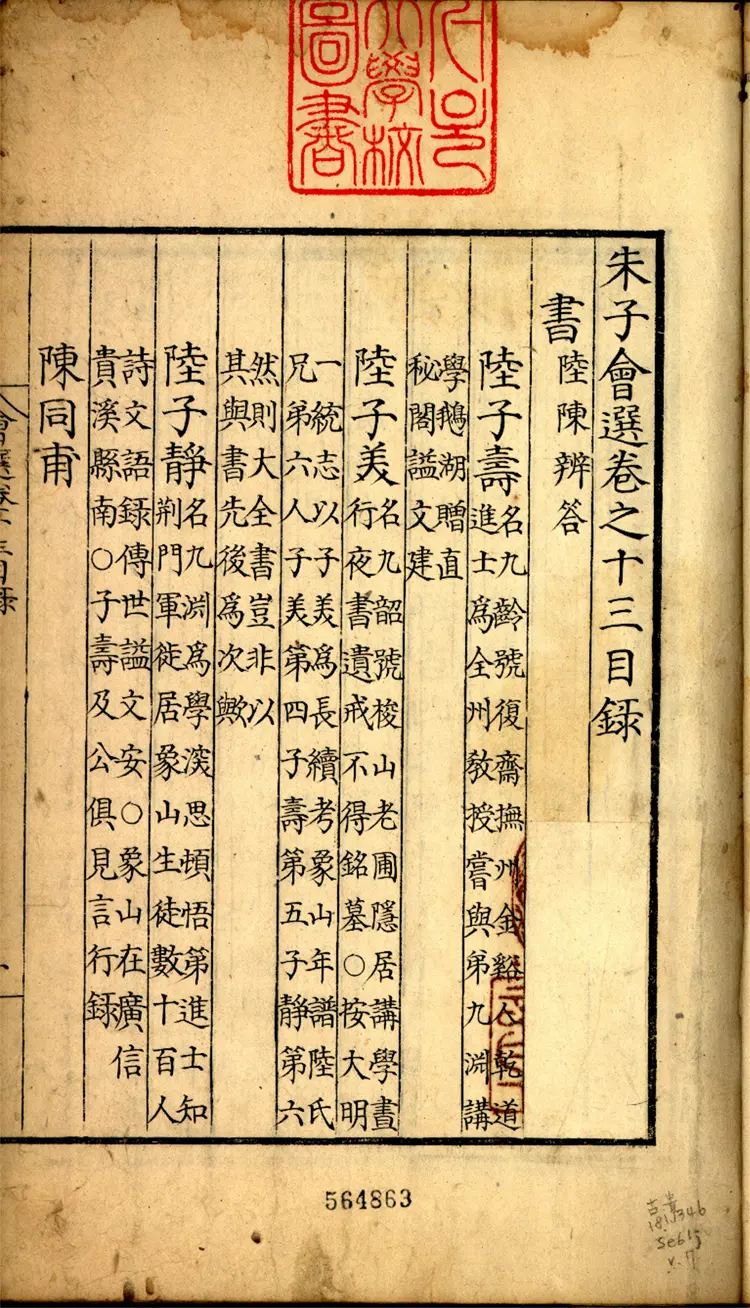 大學校
圖書
朱子會選卷之十三目録
書 陸陳辨答
陸子壽
名九齡號復齋撫州金谿人乾道
進士爲全州教授嘗與弟九淵講
學鵝湖贈直
秘閣謚文建
陸子美
名九韶號梭山老圃隱居講學晝
行夜書遺戒不得銘墓○按大明
一統志以子美爲長續考象山年譜陸氏
兄弟六人子美第四子壽第五子静第六
然則大全書豈非以
其與書先後爲次歟
陸子静
名九淵爲學深思頓悟第進士知
荆門軍徙居象山生徒數十百人
詩文語録傳世謚文安○象山在廣信
貴溪縣南○子壽及公俱見言行録
陳同甫
會選卷十三目録
564863
v.7